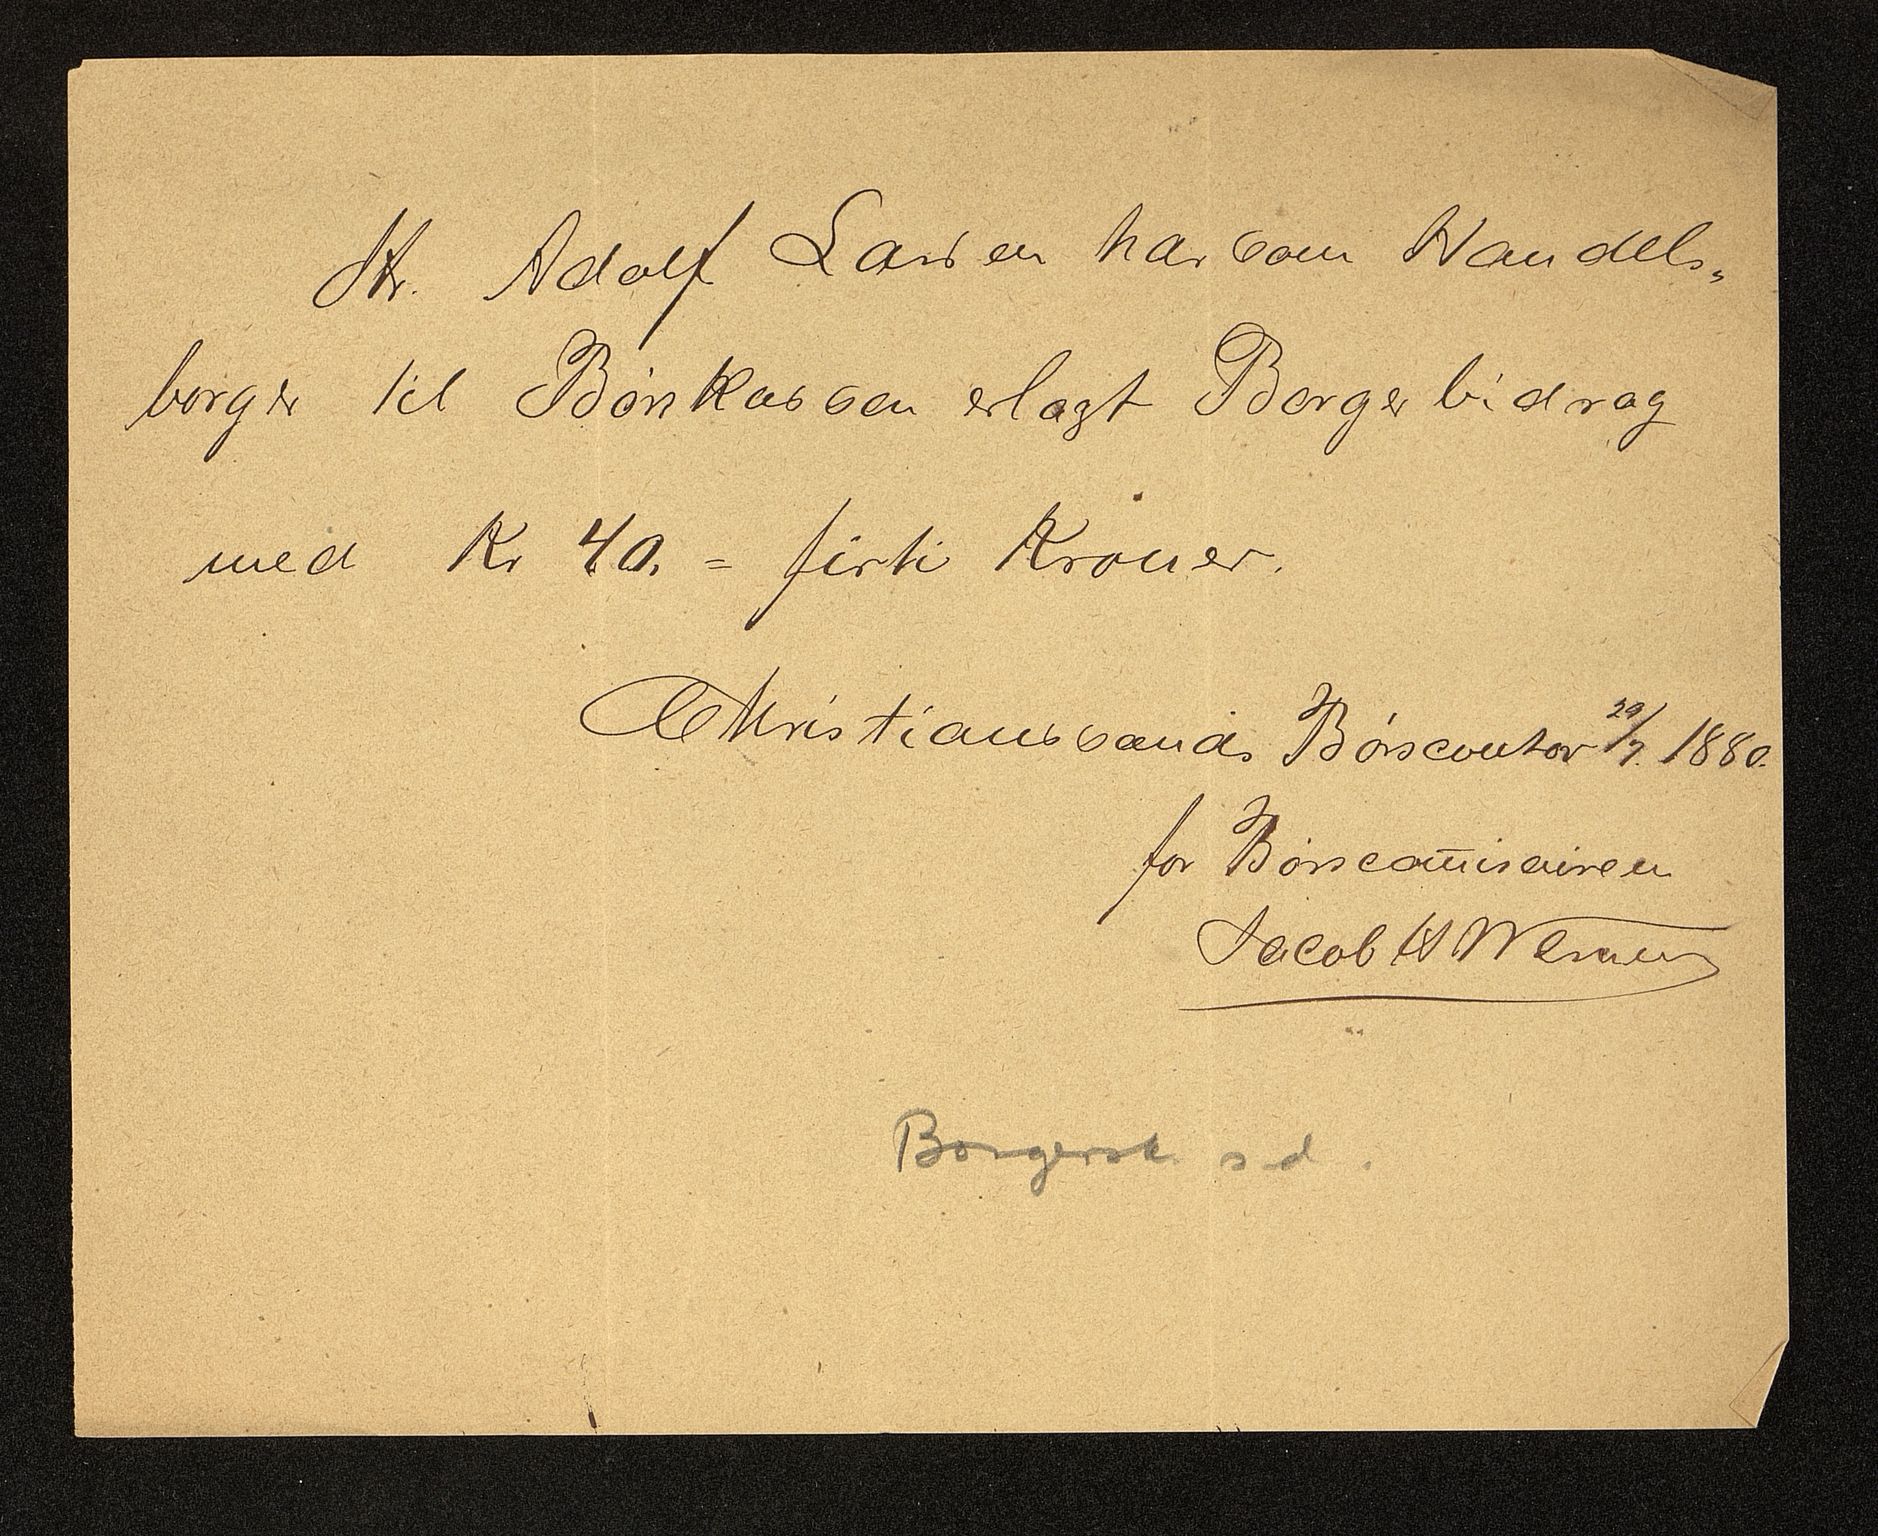 Hr. Adolf Larsen har som Handels-
borger til Börskassen erlagt Borgerbidrag
med Kr 40. = firti Kroner.
Christianssands Börscontor 29/7. 1880.
for Börscom̅isairen
Jacob H Werner
Borgersk. s.d.